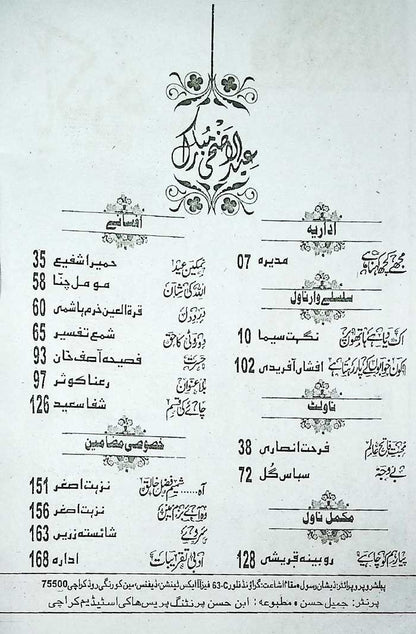 عید الاضحیٰ مبارک
اداریہ
مجھے کچھ کہنا ہے مدیرہ 07
سلسلے وار ناول
اک دیا ہے ہاتھوں میں نگہت سیما 10
کون خوابوں کے پار رہتا ہے افشاں آفریدی 102
ناولٹ
محبت فاتح عالم فرحت انصاری 38
بے وجہ سباس گل 72
مکمل ناول
پیار کو چاہیے روبینہ قریشی 128
افسانے
نمکین عید حمیرا شفیع 35
اللہ کی شان مومل چنّا 58
قرۃ العین خرم ہاشمی 60
دو بوٹی کا حق شمع تفسیر 65
حسرت فصیحہ آصف خان 93
بلا عنوان رعنا کوثر 97
چائے کی قسم شفا سعید 126
خصوصی مضامین
آہ... شمیم فضل خالق نزہت اصغر 151
نزہت اصغر 156
سروے شائستہ زریں 163
ادبی تقریبات ادارہ 168
پبلشر و پروپرائٹر: ذیشان رسول • مقام اشاعت: گراؤنڈ فلور 63-C فیز II ایکس ٹینشن ڈیفنس مین کورنگی روڈ کراچی 75500
پرنٹر: جمیل حسن • مطبوعہ: ابن حسن پرنٹنگ پریس ہاکی اسٹیڈیم کراچی